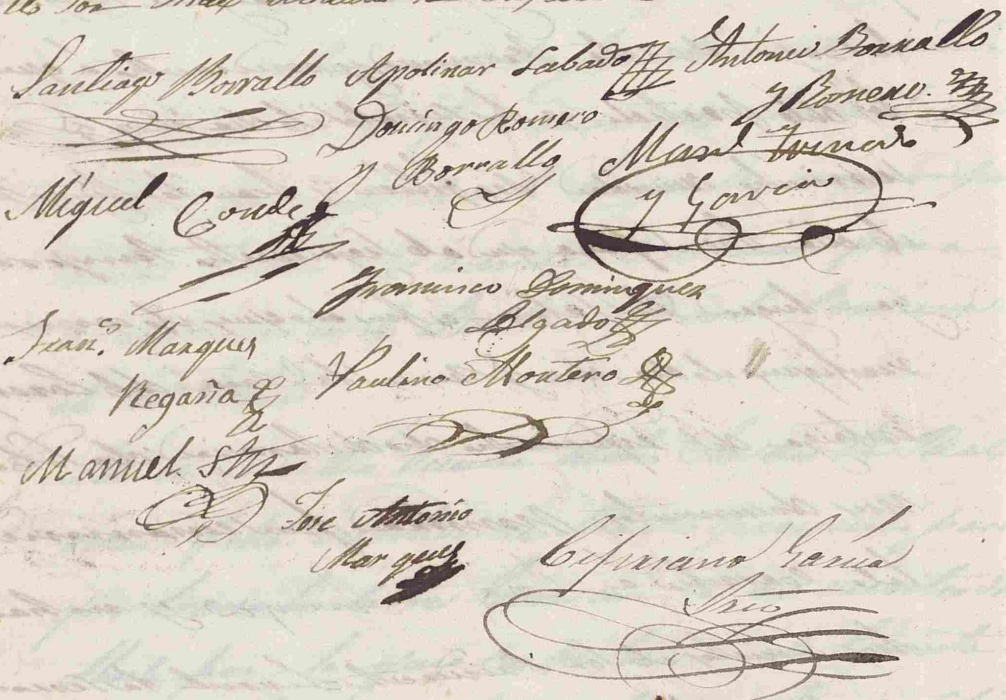 Santiago Borrallo Apolinar Sabado Antonio Borrallo
y Romero.
Domingo Romero
y Borrallo
Man.l
y Garcia
Miguel Conde
Francisco Dominguez
Delgado
Fran.co Marques
Regaña
Paulino Montero
Manuel
Jose Antonio
Marques
Cipriano Garcia
Srio